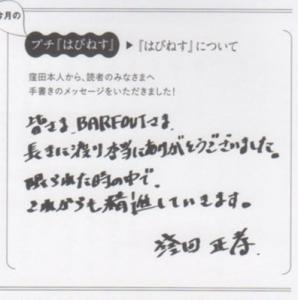 今月の
プチ『はぴねす』 ▶ 『はぴねす』について
窪田本人から、読者のみなさまへ
手書きのメッセージをいただきました！
皆さま、BARFOUTさま
長きに渡り本当にありがとうございました。
限られた時の中で、
これからも精進していきます。
窪田 正孝.